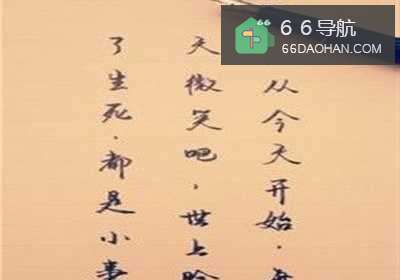 66导航
66DAOHAN.COM
从今天开始，每
天微笑吧，世上除
了生死，都是小事